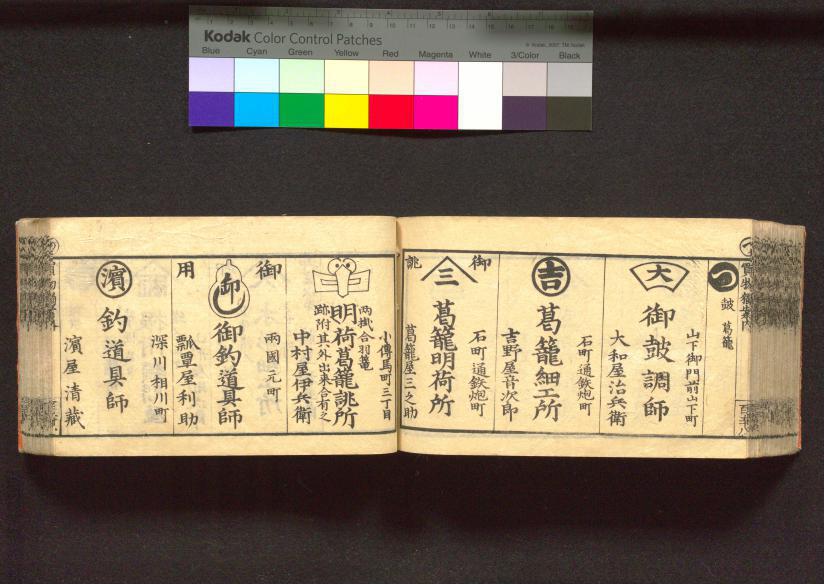 Kodak Color Control Patches
© Kodak, 2007 TM: Kodak
Blue Cyan Green Yellow Red Magenta White 3/Color Black
つ
鼓 葛籠
大
山下御門前山下町
御鼓調師
大和屋治兵衛
吉
石町通鉄炮町
葛籠細工所
吉野屋音次郎
御
三
石町通鉄炮町
葛籠明荷所
誂
葛籠屋三之助
小傳馬町三丁目
両掛合羽篭
明荷葛籠誂所
跡附其外出来合有之
中村屋伊兵衛
御
両國元町
御
御釣道具師
用
瓢覃屋利助
深川相川町
濱
釣道具師
濱屋清蔵